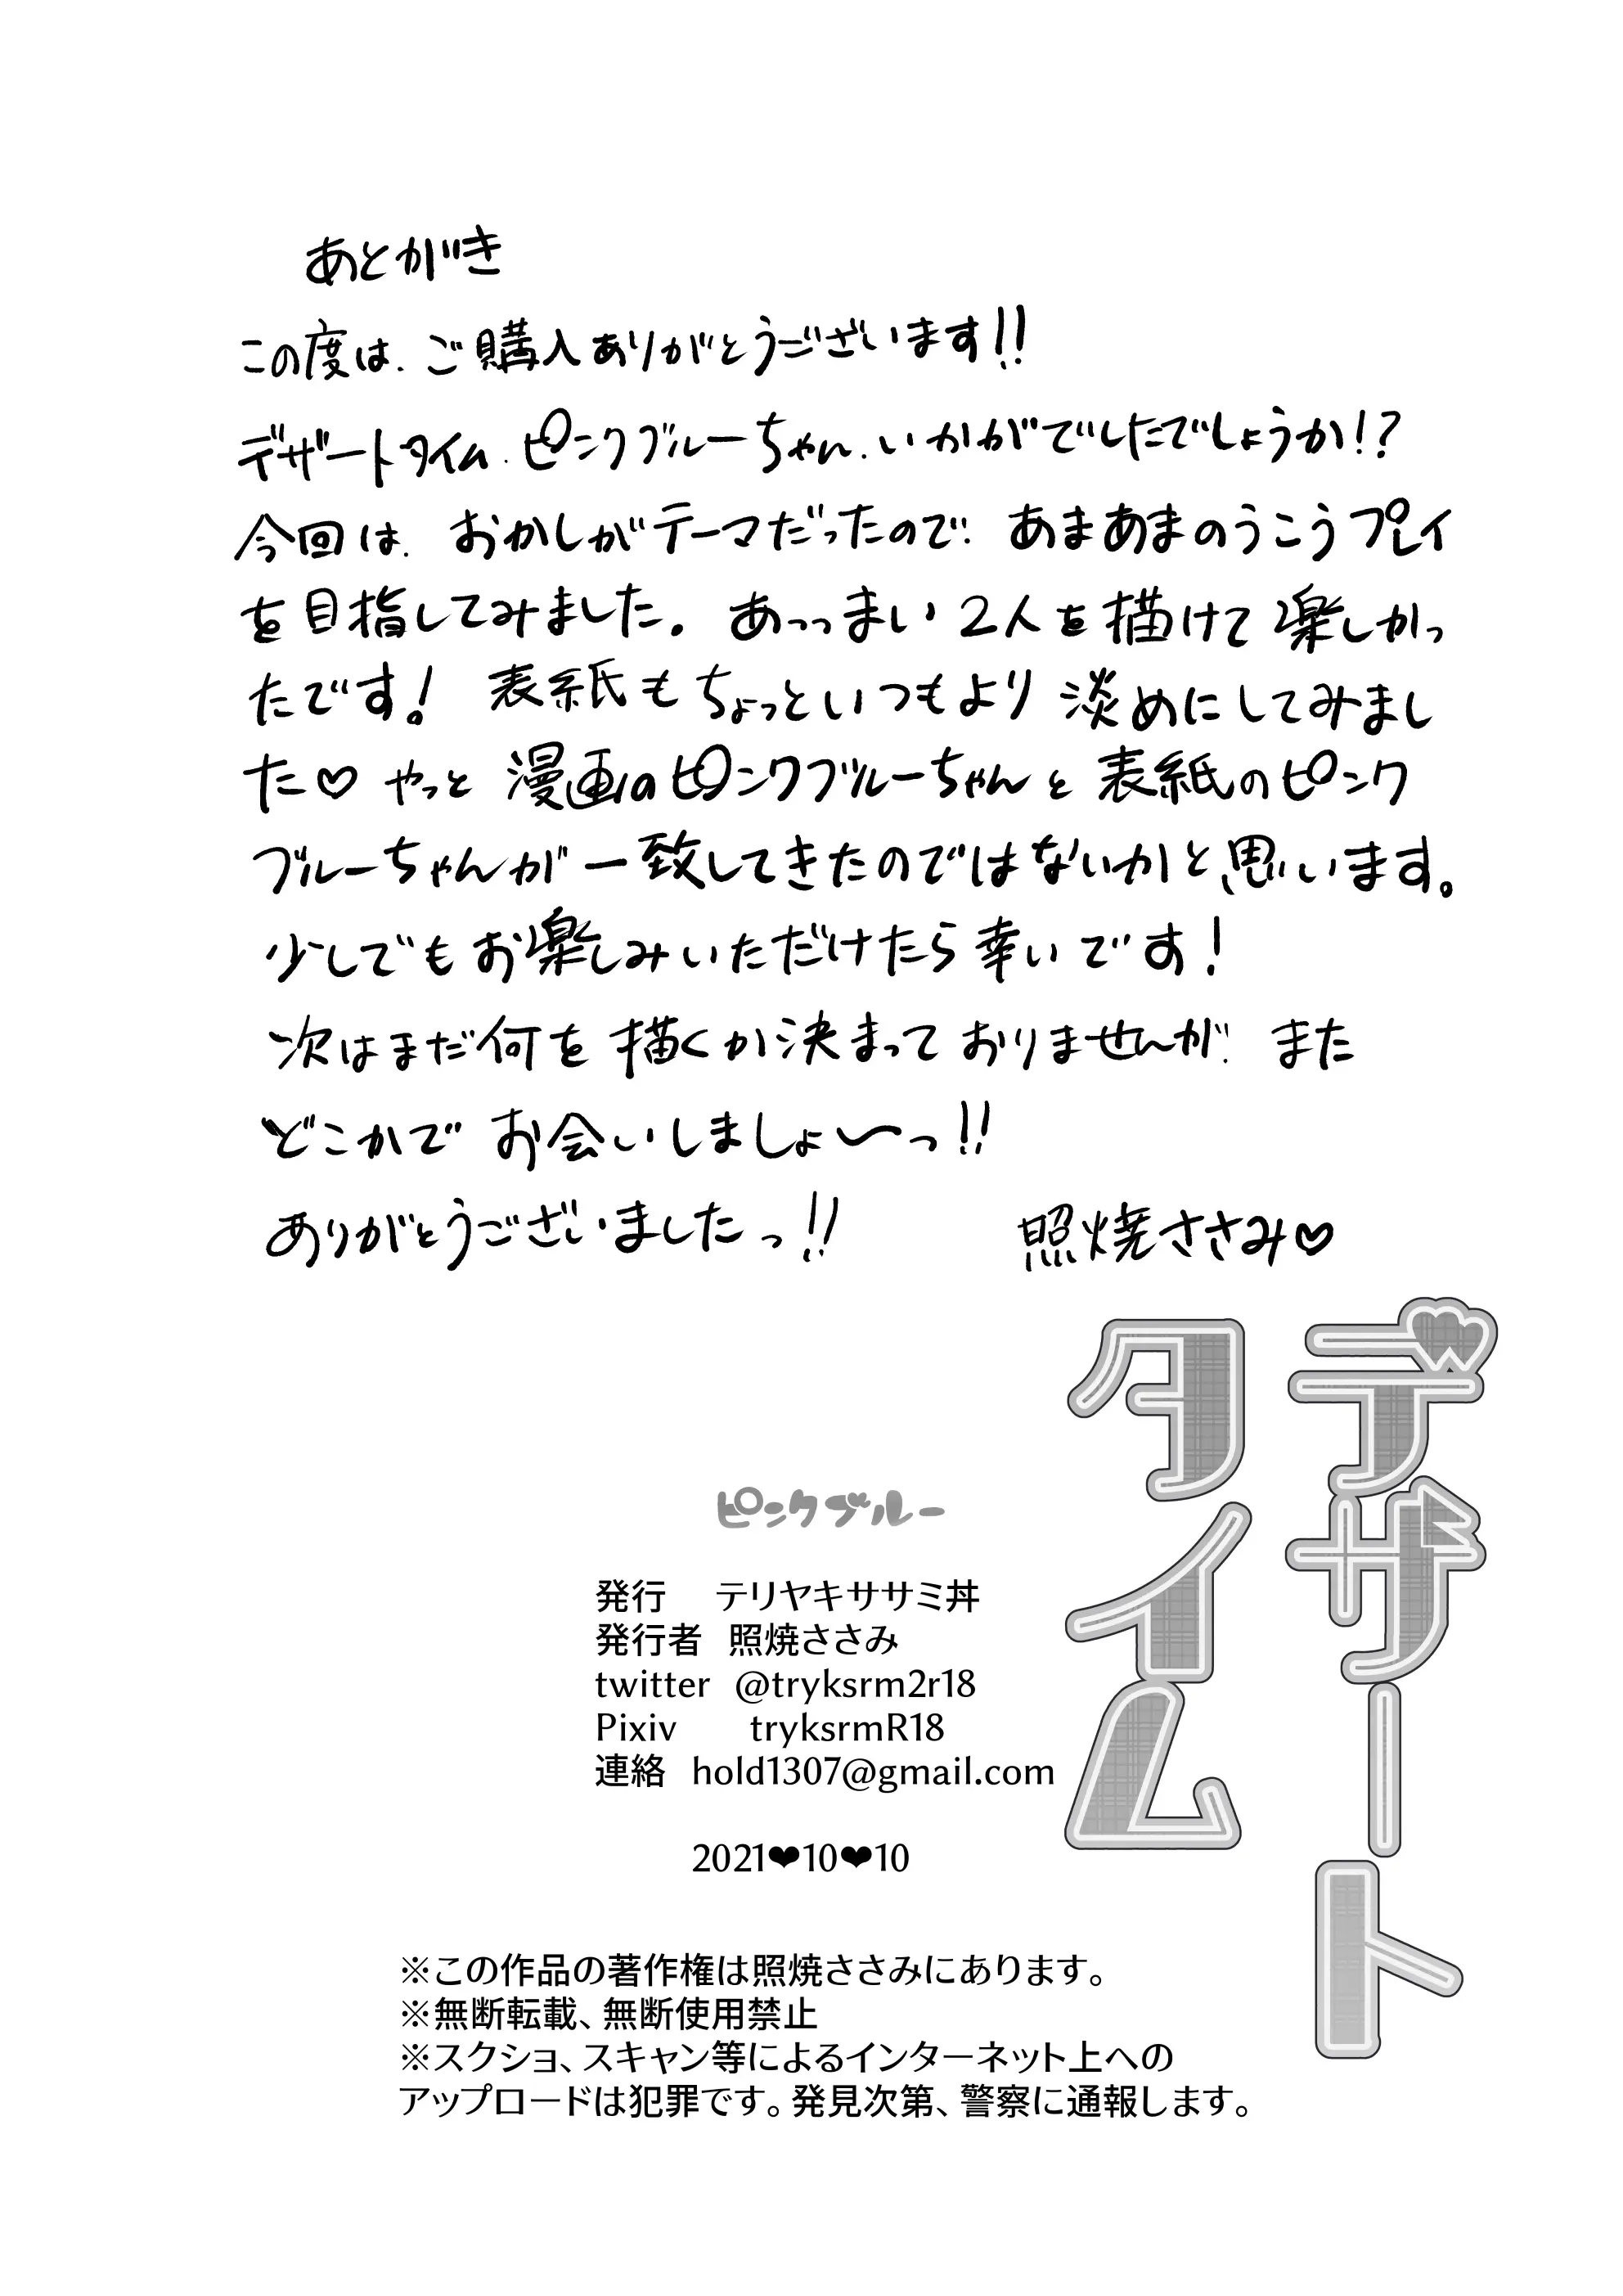 あとがき
この度は、ご購入ありがとうございます!!
デザートタイム、ピンクブルーちゃん、いかがでしたでしょうか!?
今回は、おかしがテーマだったので、あまあまのうこうプレイ
を目指してみました。あっっまい2人を描けて楽しかっ
たです! 表紙もちょっといつもより淡めにしてみまし
た♡ やっと漫画のピンクブルーちゃんと表紙のピンク
ブルーちゃんが一致してきたのではないかと思います。
少しでもお楽しみいただけたら幸いです!
次はまだ何を描くか決まっておりませんが、また
どこかでお会いしましょ〜っ!!
ありがとうございましたっ!! 照焼ささみ♡
デザート
タイム
ピンクブルー
発行 テリヤキササミ丼
発行者 照焼ささみ
twitter @tryksrm2r18
Pixiv tryksrmR18
連絡 hold1307@gmail.com
2021❤10❤10
※この作品の著作権は照焼ささみにあります。
※無断転載、無断使用禁止
※スクショ、スキャン等によるインターネット上への
アップロードは犯罪です。発見次第、警察に通報します。